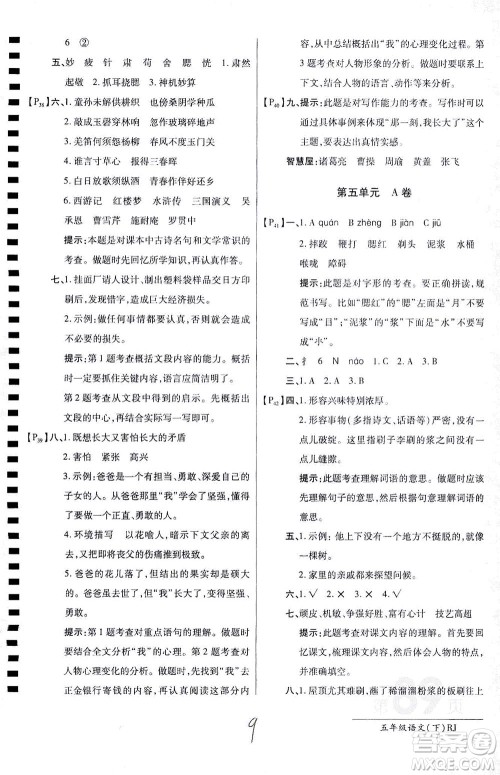 6 ②
五、妙 疲 针 肃 苟 舍 腮 恍 1. 肃然
起敬 2. 抓耳挠腮 3. 神机妙算
[P₃₈]六、1. 童孙未解供耕织 也傍桑阴学种瓜
2. 敲成玉磬穿林响 忽作玻璃碎地声
3. 羌笛何须怨杨柳 春风不度玉门关
4. 谁言寸草心 报得三春晖
5. 白日放歌须纵酒 青春作伴好还乡
6. 西游记 红楼梦 水浒传 三国演义 吴
承恩 曹雪芹 施耐庵 罗贯中
提示:本题是对课本中古诗名句和文学常识的
考查。同学们可以先回忆所学内容,
再认真作答。
七、1. 挂面厂请人设计、制出塑料袋样品交日方印
刷后,造成巨大经济损失。
2. 示例:做任何事情都要认真,否则会造成
不必要的损失。
提示:第 1 题考查概括文段内容的能力。
第 2 题考查从文段中得到的启示。先概括出
文段的中心,然后围绕中心写一写即可。
[P₃₉]八、1. 既想长大又害怕长大的矛盾
2. 害怕 紧张 高兴
3. 示例:爸爸是一个对子女严格要求、关爱
子女的人。“我”是一个听话、懂事、勇敢的
人。爸爸的鼓励使“我”变得坚强、勇敢。
4. 环境描写 以花喻人,暗示下文父亲的
离去,使“我”感到悲痛。
5. 爸爸的花儿落了,但他对“我”的爱是硕大
的。“我”已经长大,应变得更坚强、勇敢。
提示:第 1 题考查对重点语句的理解。要
结合全文分析“我”的内心。第 2 题考查对
人物心理变化的分析。要从文中找出“我”去
正金银行寄钱的内容,体会“我”的心理,从
中总结概括出“我”的心理变化过程。第
3 题考查对人物形象的分析。要结合上下
文,进行总结分析。
[P₄₀]九、提示:此题是对写作能力的考查。可以写一
个具体事例,围绕“那一刻,我长大了”这个
主题,要表达真情实感。
智慧屋:诸葛亮 曹操 周瑜 黄盖 张飞
第五单元 A 卷
[P₄₁]一、1. A quán B zhèng jiàn C jī
D jué
2. 摔跤 鞭打 腮红 剃头 泥浆 水桶
喉咙 障碍
提示:此题是对字形的考查。注意书写
规范。如“腮红”的“腮”容易把右下部分错
写成“日”;“泥浆”的“浆”容易把“水”错写
成“小”。
二、扌 6 N náo 1. A 2. A 3. B
三、1. B 2. B 3. B
[P₄₂]四、1. 形容兴味特别浓厚。
2. 形容事物(多指诗文、话语等)没有一
点儿破绽。本句指刷子李刷的浆之间没有
一点儿缝隙。
提示:此题考查理解词语的意思。要先理
解句子的意思,再理解词语的意思。
五、1. 示例:他上下没有一个地方不挺拔,就像
一棵树。
2. 家里的亲戚都对我关怀备至。
六、1. √ 2. × 3. √ 4. √
七、顽皮、机敏、争强好胜,富有同情心 技艺高超
提示:此题考查对课文内容的理解。首先要
梳理课文内容,再进行总结概括。
八、1. 屋顶尤其难刷,蘸了稀溜溜粉浆的板刷往上
9
五年级语文(下)RJ